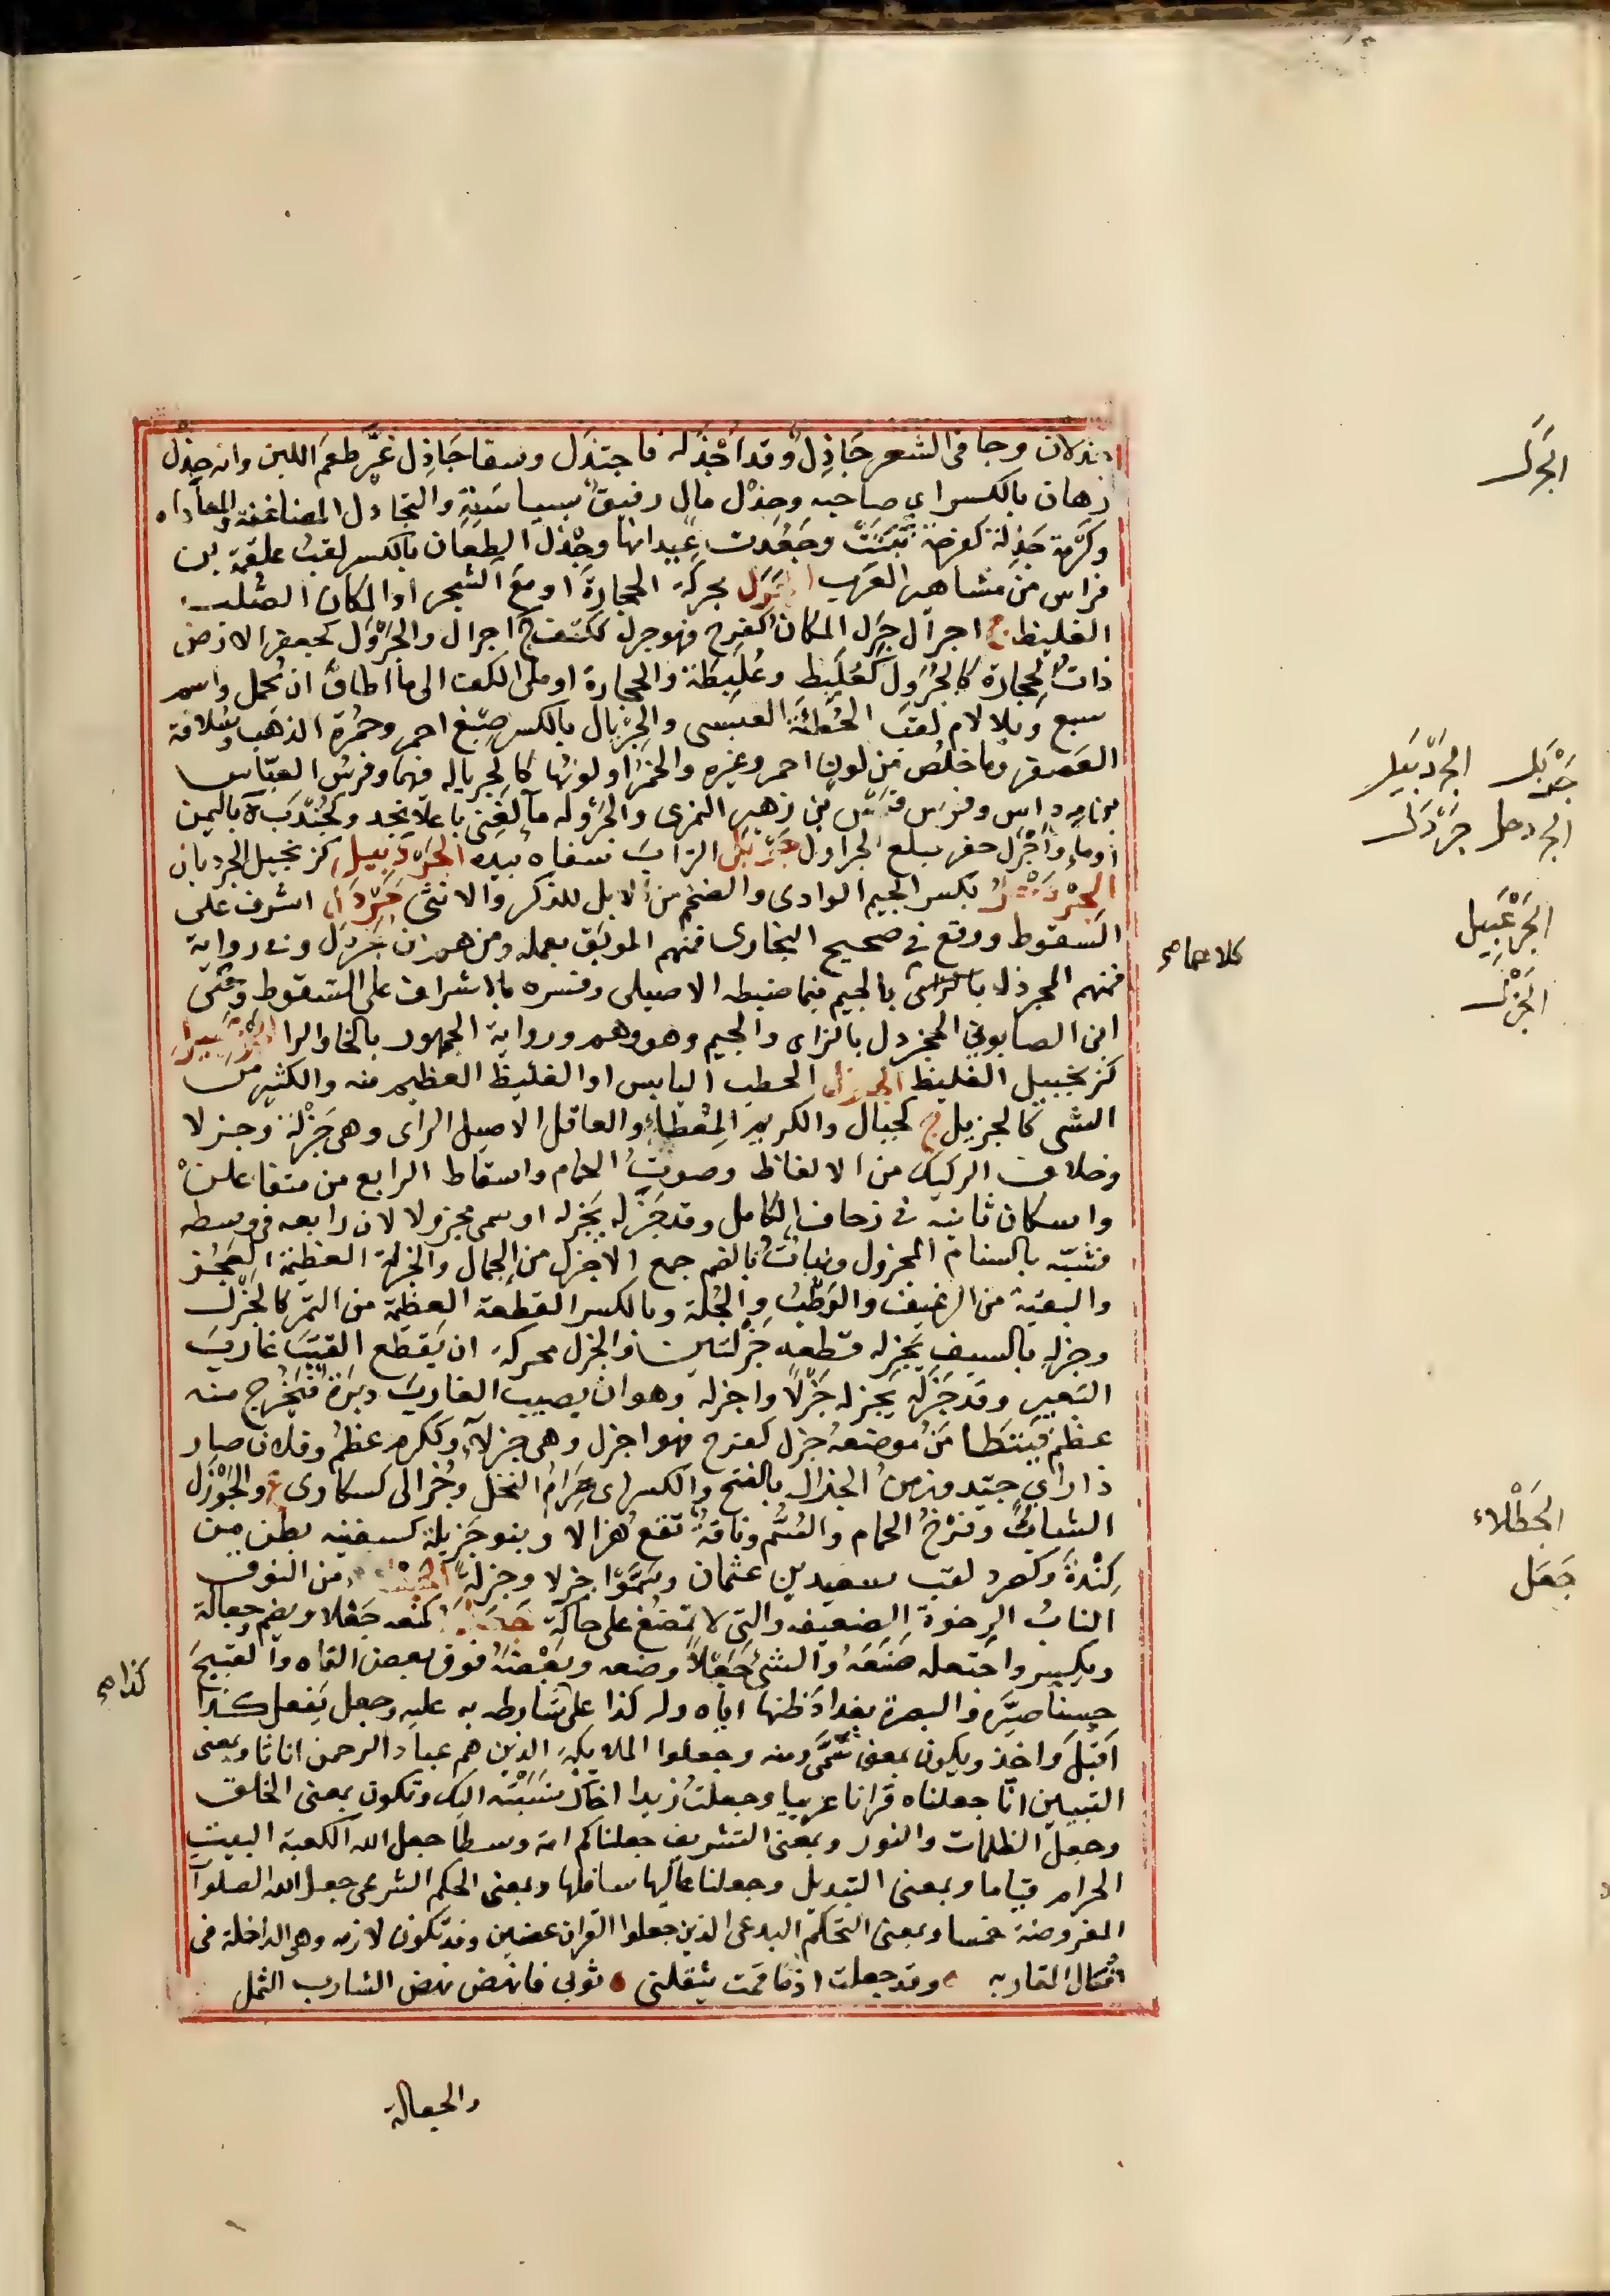 جذلان وجا فى الشعر جَاذِل وقد اَجْذَله فاجتذل وسقا جَاذِل غيَّر طعمَ اللبن وانه جِذْل
رهان بالكسر اي صاحبه وجِذْل مال رفيق بسياسته والتجاذل المضاغنة والمعاداه
وكَرْمة جَذِلة كفرحة نَبَتَتْ وجَعُدت عِيدانها وجِذْل الطِعان بالكسر لقب علقمة بن
فراس من مشاهير العرب الجَرَل محركة الحجارة او مع الشجر او المكان الصُلب
الغليظ ج اجرال جَرِل المكان كفرح فهو جرل ككتف ج اجرال والجَرْوَل كجعفر الارض
ذات الحجارة كالجُرَوِل كعُلَبِط وعُلَبِطة والحجارة او ملئ الكف الى ما اطاق ان تحمل واسم
سبع وبلا لام لقب الحُطَيْئَة العبسى والجِرْيال بالكسر صِبْغ احمر وحُمْرة الذهب وسُلافة
العصفر وما خلُص من لون احمر وغيره والخمر او لونها كالجرياله فيهما وفرس العباس
بن مرداس وفرس قيس بن زهير النمرى والجَرْوله ما لغنى باعلا نجد وكجُنْدَبَة باليمن
او ماء واَجْرَل حفر فبلغ الجراول جَرْبَل التراب سفاه بيده الجَرْدَبيل كزنجبيل الجردبان
الجِرْدَحْل بكسر الجيم الوادى والضخم من الابل للذكر والانثى جَرْدَل اشرف على
السقوط ووقع فى صحيح البخارى فمنهم الموبق بعمله ومنهم من جَرْدَل وفى رواية
فمنهم المجردل بالراى بالجيم فيما ضبطه الاصيلى وفسره بالاشراف على السقوط وحكى
ابن الصابوني المجزدل بالزاى والجيم وهو وهم ورواية الجمهور بالخا والرا الجَرْعَبيل
كزنجبيل الغليظ الجزل الحطب اليابس او الغليظ العظيم منه والكثير من
الشى كالجزيل ج كجبال والكريم المِعْطاء والعاقل الاصيل الراى وهى جَزْلة وجزلا
وخلاف الركيك من الالفاظ وصوت الحمام واسقاط الرابع من متفاعلن
واسكان ثانيه فى زحاف الكامل وقد جَزَله يَجْزِله او سمى مجزولا لان رابعه فى وسطه
فشبه بالسنام المجزول ونبات بالضم جمع الاجزل من الجمال والجَزْلة العظيمة العَجُز
والبقية من الرغيف والوَطْب والجُلّة وبالكسر القطعة العظيمة من التمر كالجِزْل
وجزله بالسيف يجزله قطعه جِزْلتين والجزل محركة ان يقطع القتب غارب
البعير وقد جَزَله يجزله جَزْلاً واجزله وهو ان يصيب الغارب دبرة فيَخْرج منه
عظم فيتطا من موضعه جزل كفرح فهو اجزل وهى جزلآء وككرم عظم وفلان صار
ذا راي جيد وزمن الجزال بالفتح والكسر اى صِرَام النخل وجُزالى كسكارى ع والجَوْزَل
الشابُّ وفَرْخُ الحمام والسُّم وناقة تقع هزالا وبنو جَزِيلة كسفينه بطن من
كِنْدةَ وكصرد لقب سعيد بن عثمان وسَمَّوْا جزلا وجزلة الجَطْلاء من النوق
الناب الرخوة الضعيفه والتى لا تمضغ على حاكة جَعَلَه كمنعه جَعْلا ويضم وجعالة
ويكسر واجتعله صَنَعَه والشئ جَعْلاً وضعه وبَعْضَه فوق بعض القاه والقبيح
حسنًا صيَّره والبصرةَ بغداذ ظنها اياه وله كذا على شارطه به عليه وجعل يفعل كذا
اَقبَلَ واخذ ويكون بمعنى سَمَّى ومنه وجعلوا الملايكة الذين هم عباد الرحمن اناثا وبمعنى
التبيين انا جعلناه قرانا عربيا وجعلت زيدا اخاك نَسَبْتُه اليك وتكون بمعنى الخلق
وجعل الظلمات والنور وبمعنى التشريف جعلناكم امة وسطا جعل الله الكعبة البيت
الحرام قياما وبمعنى التبديل وجعلنا عاليها سافلها وبمعنى الحكم الشرعى جعل الله الصلوآت
المفروضة خمسا وبمعنى التحكم البدعى الذين جعلوا القران عضين وقد تكون لازمه وهى الداخلة فى
افعال المقاربه وقد جعلت اذا ما قمت يثقلنى ثوبى فانهض نهض الشارب الثمل
والجعالة
الجَرَل
جَرْبَل الجَرْدَبيل
الجردحل جَرْدَل
الجَرْعَبِيل
الجَزْل
الجَطْلاء
جَعَل
كذا صح